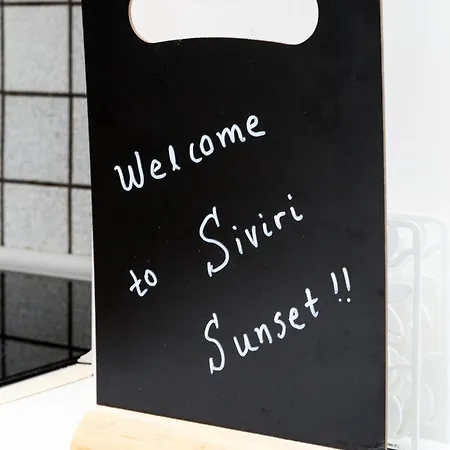 Welcome
to Siviri
Sunset!!